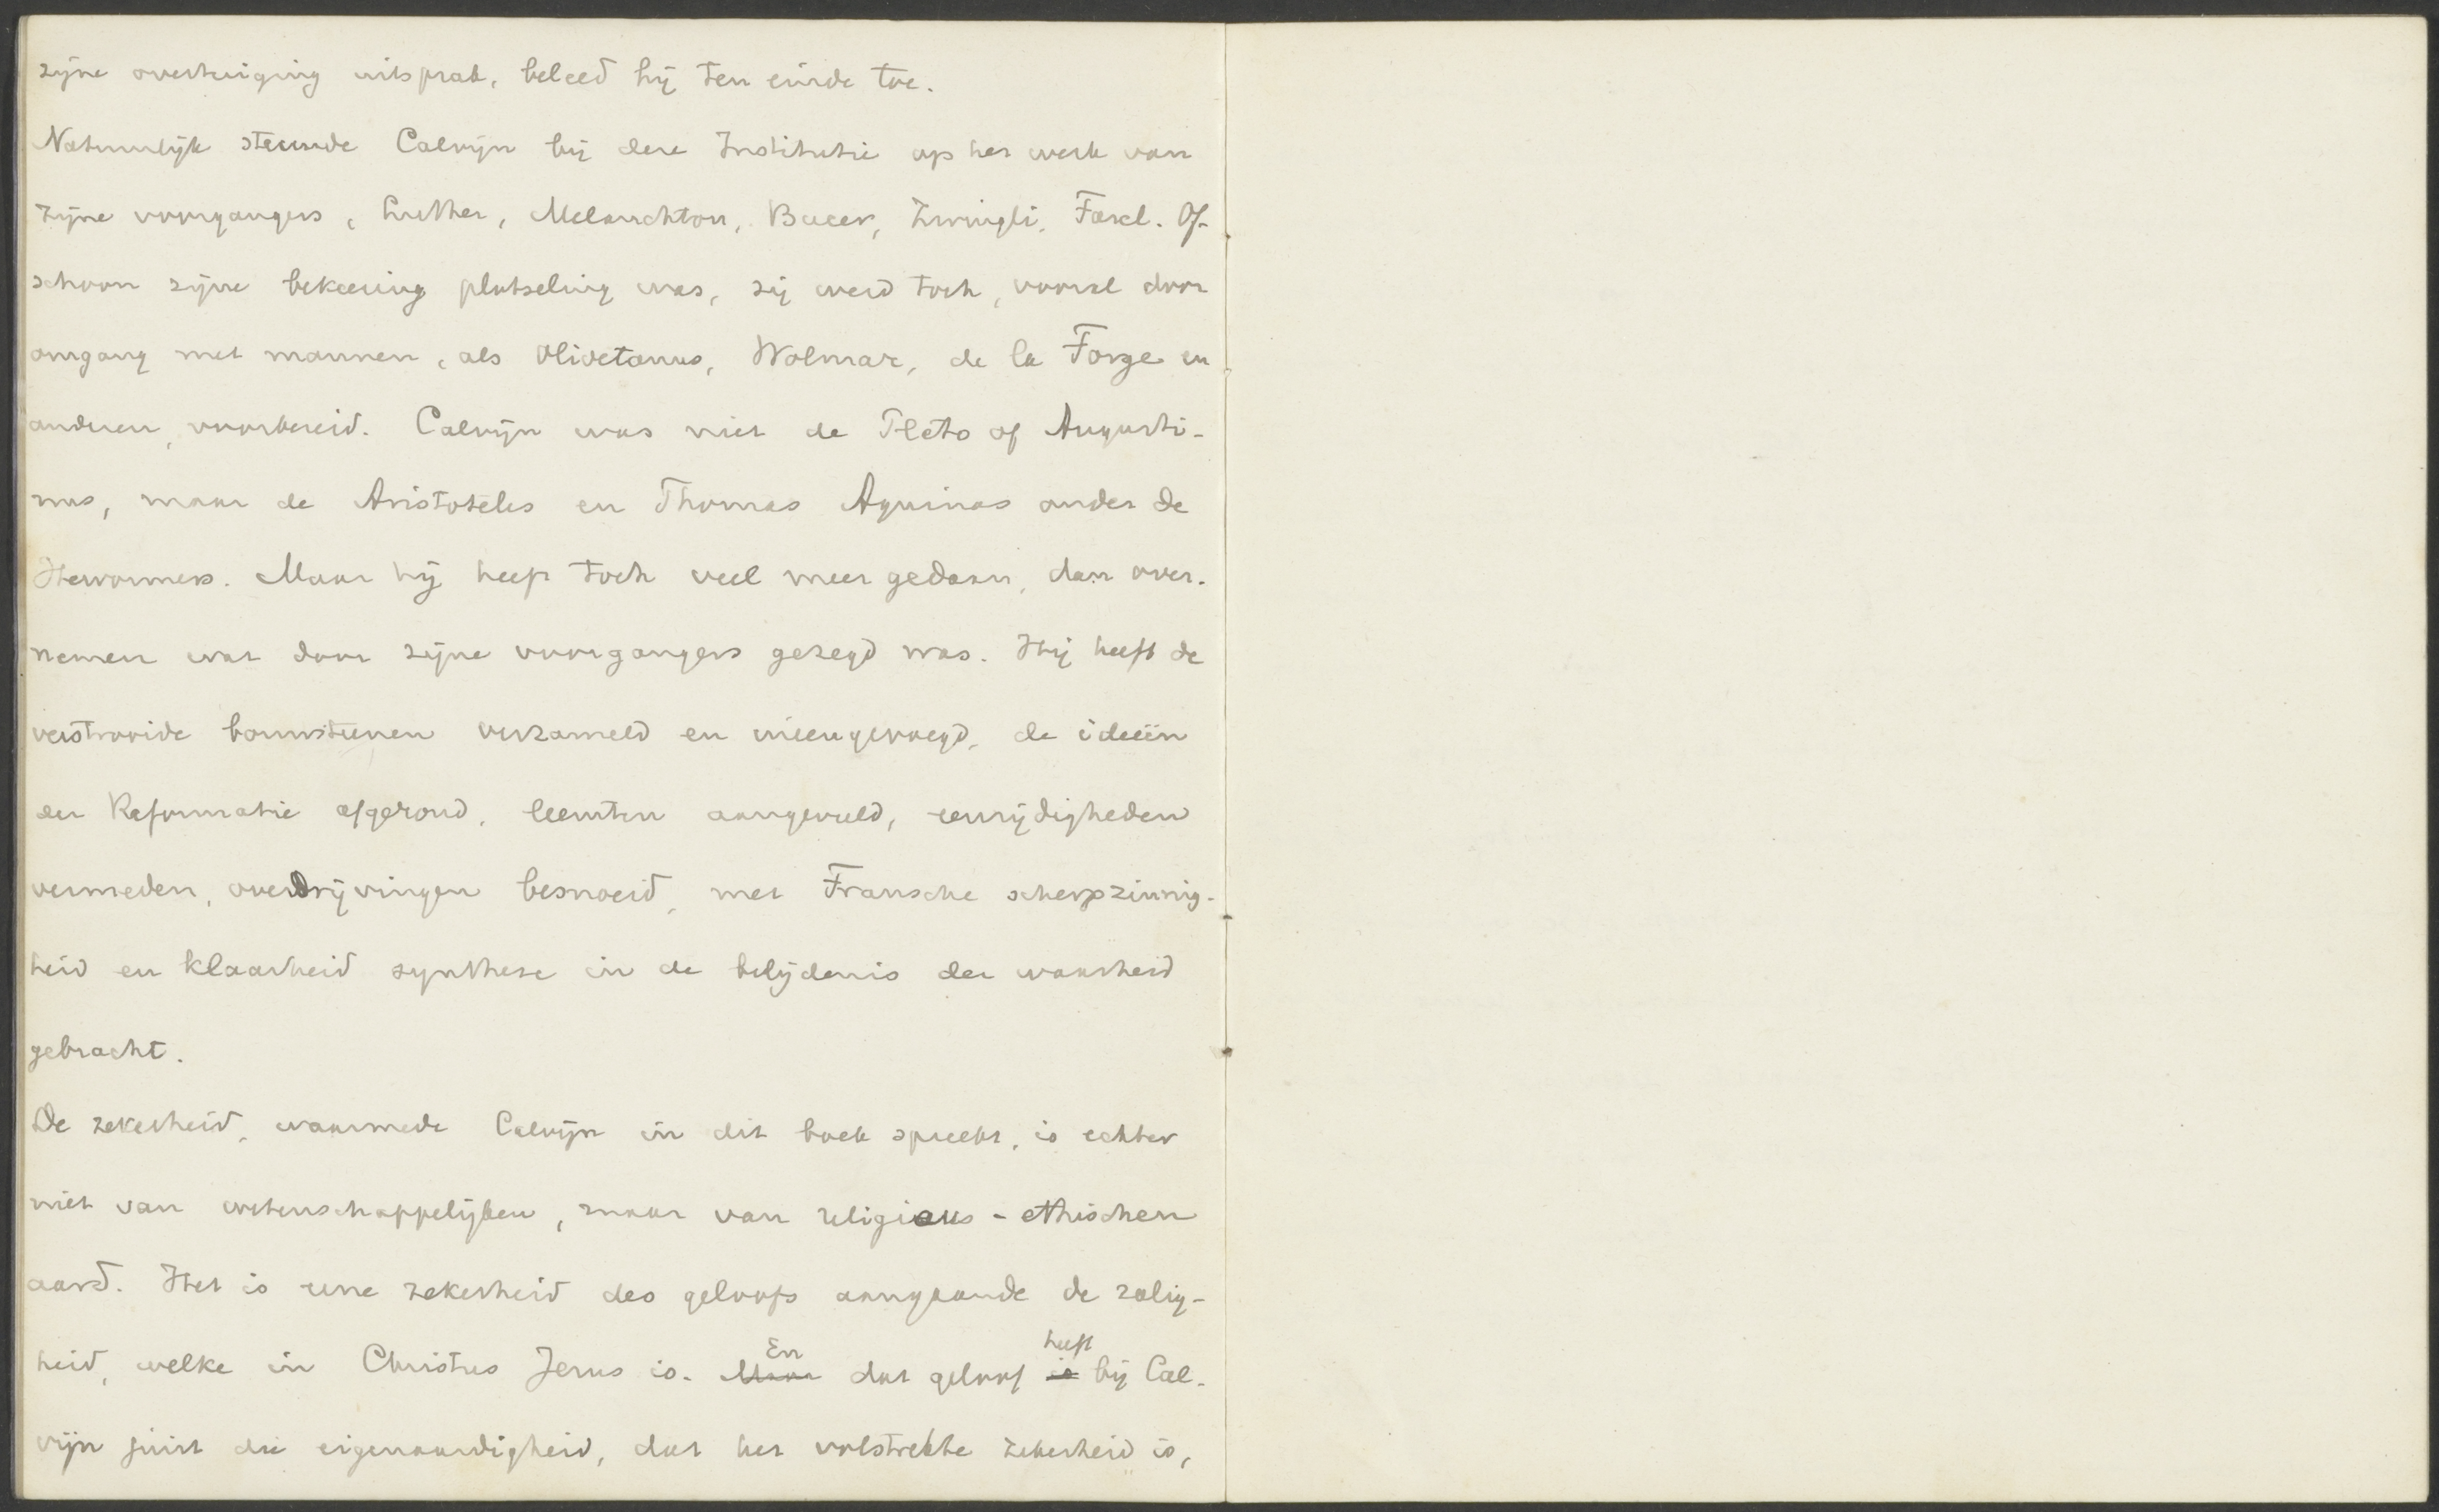 zijne overtuiging uitsprak, beleed hij ten einde toe.
Natuurlijk steunde Calvijn bij deze Institutie op het werk van
zijne voorgangers, Luther, Melanchton, Bucer, Zwingli, Farel. Of-
schoon zijne bekeering plotseling was, zij werd toch, vooral door
omgang met mannen, als Olivetanus, Wolmar, de la Forge en
anderen, voorbereid. Calvijn was niet de Plato of Augusti-
nus, maar de Aristoteles en Thomas Aquinas onder de
Hervormers. Maar hij heeft toch veel meer gedaan, dan over-
nemen wat door zijne voorgangers gezegd was. Hij heeft de
verstrooide bouwsteenen verzameld en ineengevoegd, de ideeën
der Reformatie afgerond, leemten aangevuld, eenzijdigheden
vermeden, overdrijvingen besnoeid, met Fransche scherpzinnig-
heid en klaarheid synthese in de belijdenis der waarheid
gebracht.
De zekerheid, waarmede Calvijn in dit boek spreekt, is echter
niet van wetenschappelijken, maar van religieus-ethischen
aard. Het is eene zekerheid des geloofs aangaande de zalig-
heid, welke in Christus Jezus is. Maar En dat geloof is heeft bij Cal-
vijn juist die eigenaardigheid, dat het volstrekte zekerheid is,